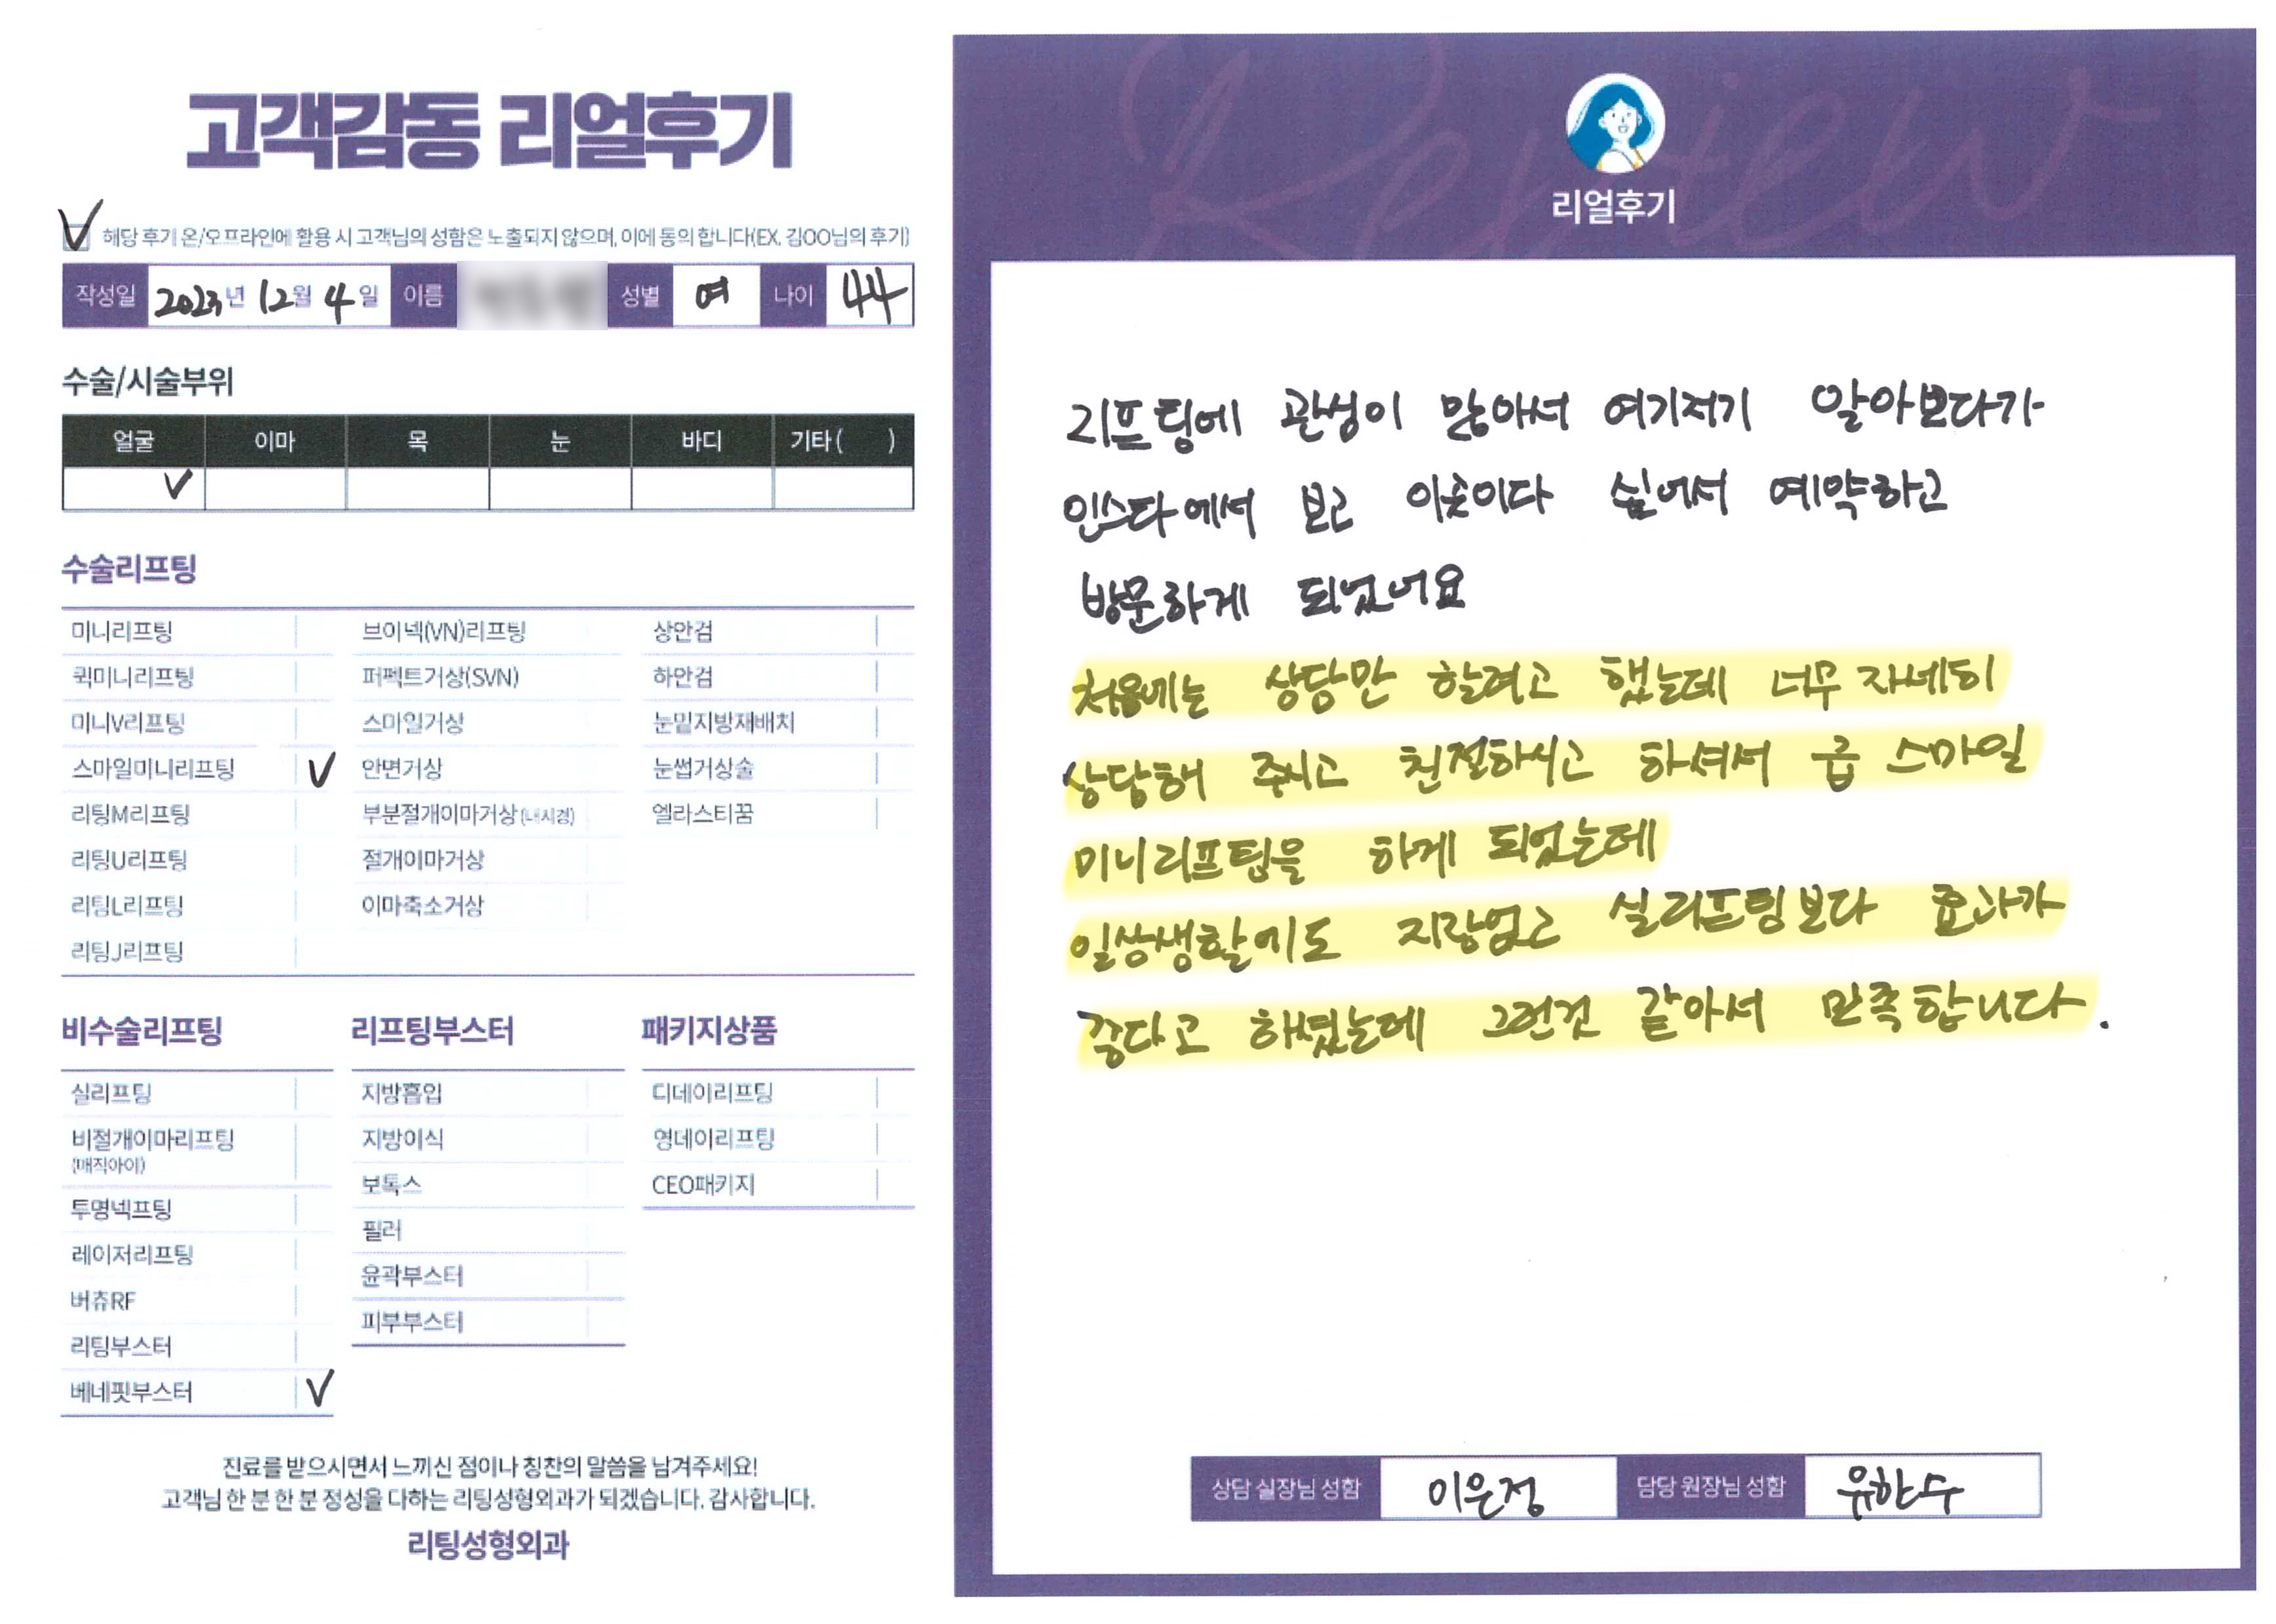 고객감동 리얼후기
해당 후기 온/오프라인에 활용 시 고객님의 성함은 노출되지 않으며, 이에 동의 합니다(EX. 김OO님의 후기)
작성일 2023년 12월 4일 이름 성별 여 나이 44
수술/시술부위
얼굴 이마 목 눈 바디 기타( )
수술리프팅
미니리프팅 브이넥(VN)리프팅 상안검
퀵미니리프팅 퍼펙트거상(SVN) 하안검
미니V리프팅 스마일거상 눈밑지방재배치
스마일미니리프팅 안면거상 눈썹거상술
리팅M리프팅 부분절개이마거상(내시경) 엘라스티꿈
리팅U리프팅 절개이마거상
리팅L리프팅 이마축소거상
리팅J리프팅
비수술리프팅 리프팅부스터 패키지상품
실리프팅 지방흡입 디데이리프팅
비절개이마리프팅 지방이식 영데이리프팅
(매직아이)
보톡스 CEO패키지
투명넥프팅 필러
레이저리프팅 윤곽부스터
버츄RF 피부부스터
리팅부스터
베네핏부스터
진료를 받으시면서 느끼신 점이나 칭찬의 말씀을 남겨주세요!
고객님 한 분 한 분 정성을 다하는 리팅성형외과가 되겠습니다. 감사합니다.
리팅성형외과
Review
리얼후기
리프팅에 관심이 많아서 여기저기 알아보다가
인스타에서 보고 이곳이다 싶어서 예약하고
방문하게 되었어요
처음에는 상담만 할려고 했는데 너무 자세히
상담해 주시고 친절하시고 하셔서 급 스마일
미니리프팅을 하게 되었는데
일상생활에도 지장없고 실리프팅보다 효과가
좋다고 하셨는데 그런것 같아서 만족합니다.
상담 실장님 성함 이은정 담당 원장님 성함 유한수